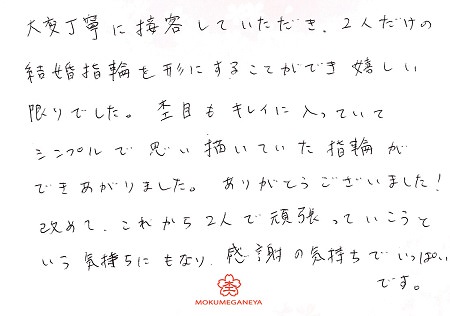 大変丁寧に接客していただき、2人だけの
結婚指輪を形にすることができ嬉しい
限りでした。杢目もキレイに入っていて
シンプルで思い描いていた指輪が
できあがりました。ありがとうございました!
改めて、これから2人で頑張っていこうと
いう気持ちにもなり、感謝の気持ちでいっぱい
です。
杢
MOKUMEGANEYA